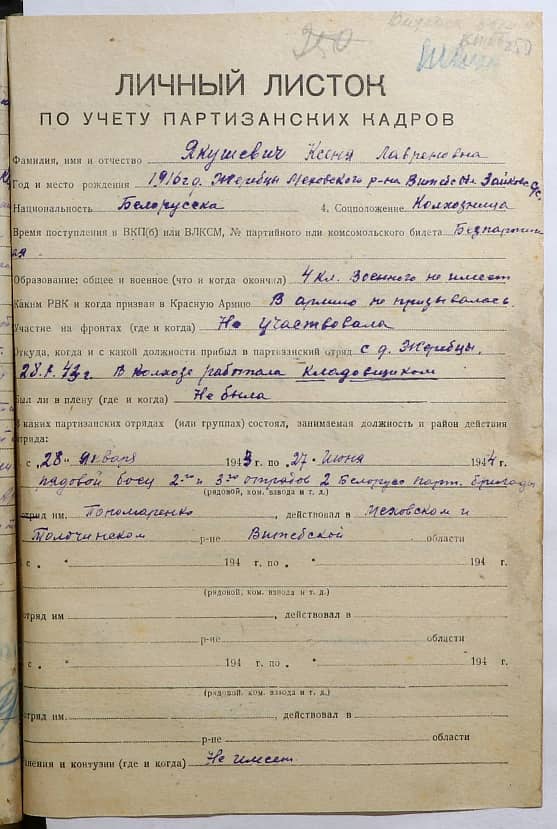 250
ЛИЧНЫЙ ЛИСТОК
ПО УЧЕТУ ПАРТИЗАНСКИХ КАДРОВ
Фамилия, имя и отчество Якушевич Ксеня Лавреновна
Год и место рождения 1916 г. Жеребцы Меховского р-на Витебс обл Зайковс с/с.
Национальность Белорусска 4. Соцположение Колхозница
Время поступления в ВКП(б) или ВЛКСМ, № партийного или комсомольского билета Безпартий
ая.
Образование: общее и военное (что и когда окончил) 4 кл. Военного не имеет
Каким РВК и когда призван в Красную Армию В армию не призывалась.
Участие на фронтах (где и когда) Не участвовала
Откуда, когда и с какой должности прибыл в партизанский отряд с д. Жеребцы.
28.I.43 г. В колхозе работала кладовщиком
был ли в плену (где и когда) Не была
В каких партизанских отрядах (или группах) состоял, занимаемая должность и район действия
отряда:
с „28" Января 1943 г. по „27" Июня 1944 г.
рядовой боец 2-го и 3-го отрядов 2 Белорусс парт. бригады
(рядовой, ком. взвода и т. д.)
отряд им. Пономаренко, действовал в Меховском и
Толочинском р-не Витебской области
с „ " 194 г. по „ " 194 г.
(рядовой, ком. взвода и т. д.)
отряд им, действовал в
р-не области
с „ " 194 г. по „ " 194 г.
(рядовой, ком. взвода и т. д.)
отряд им., действовал в
р-не области
ранения и контузии (где и когда) Не имеет.